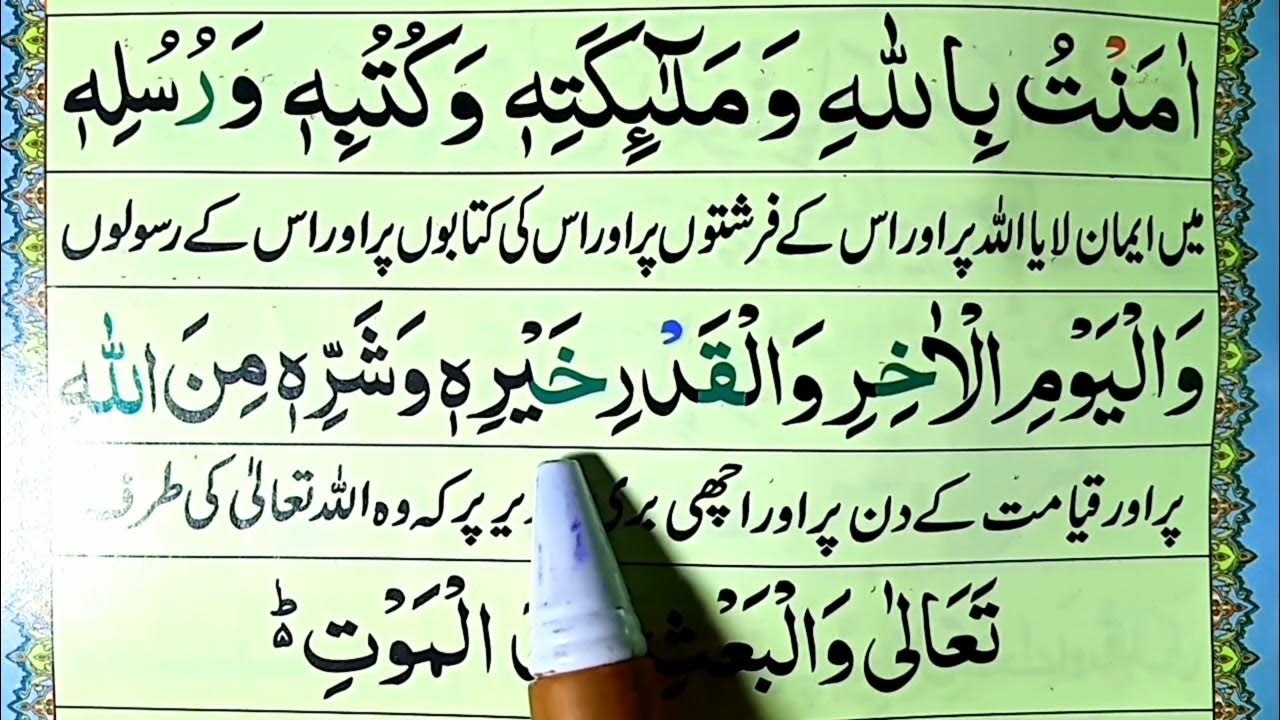 اٰمَنْتُ بِاللّٰهِ وَمَلٰٓئِكَتِهٖ وَكُتُبِهٖ وَرُسُلِهٖ
میں ایمان لایا اللہ پر اور اس کے فرشتوں پر اور اس کی کتابوں پر اور اس کے رسولوں
وَالْیَوْمِ الْاٰخِرِ وَالْقَدْرِ خَیْرِهٖ وَشَرِّهٖ مِنَ اللّٰهِ
پر اور قیامت کے دن پر اور اچھی بری پر کہ وہ اللہ تعالیٰ کی طرف
تَعَالٰی وَالْبَعْثِ الْمَوْتِ ؕ ۵